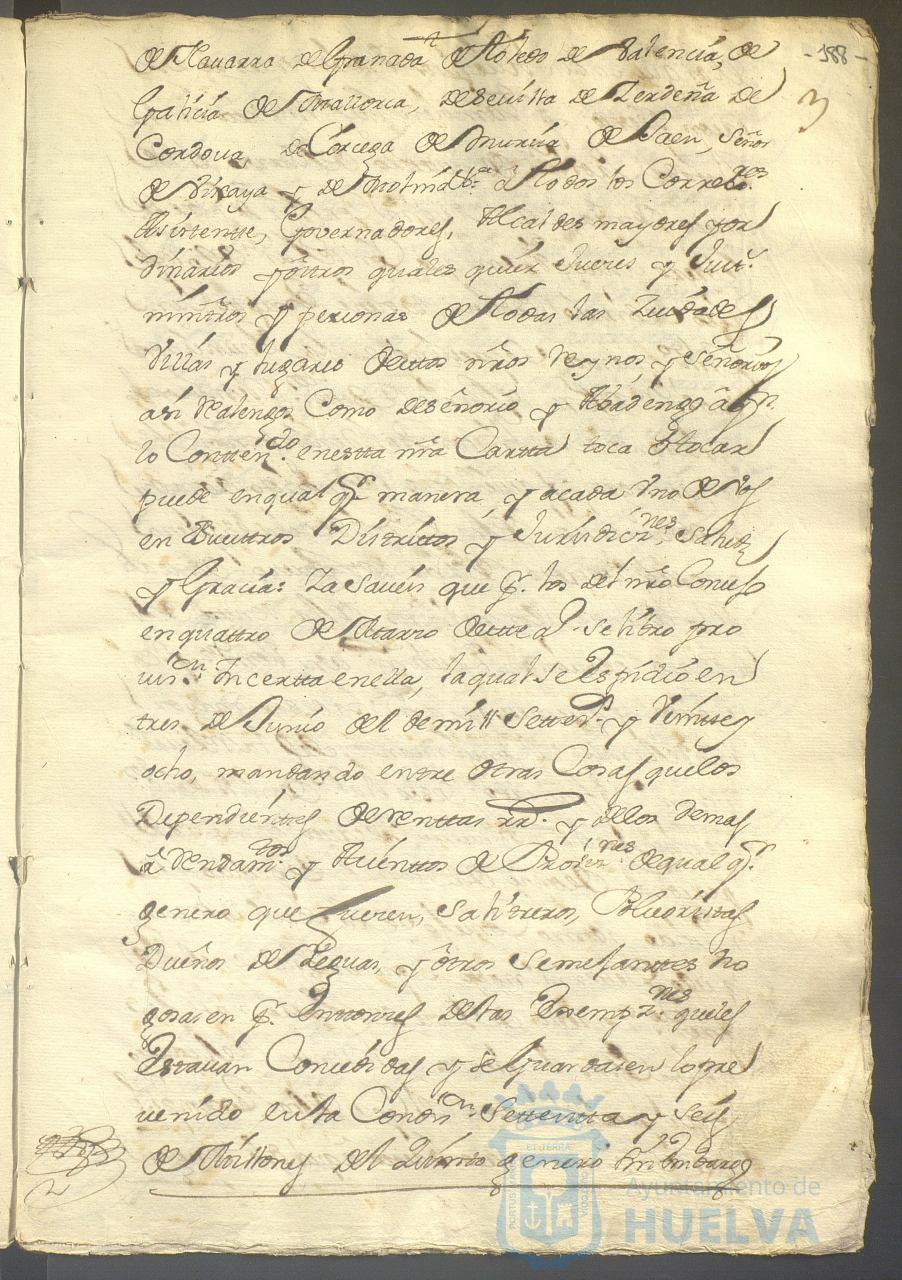 - 388 -
3
de Navarra de Granada de Toledo de Valencia, de
Galicia de Mallorca, de Sevilla de Zerdeña de
Cordova, de Corcega de Murcia de Jaen, Señor
de Vizcaya y de Molina &ª a todos los Corre.res
Asistentte, Governadores, Alcaldes mayores y or
dinarios y ôtros quales quier Jueces y Just.
ministros y personas de todas las Ziudades
Villas y lugares destos nr̃os Reynos y Señorios
asi Realengos Como de Señorio y Abadengo a q.n
lo Contten.do enestta nr̃a Cartta toca ô tocar
puede enqual q.r manera, y acada Uno de Vos
en Vuestros Districttos y Jurisdicz.nes Salud
y Gracia: Ya Saveis que p.r los del nr̃o Consejo
enquattro de Marzo deste a.º se libro pro
uis.on Yncertta enella, laqual se Espidio en
tres de Junio del de mill Settez.s y Veintte y
ocho, mandando entre otras Cosas quelos
Dependienttes de Renttas R.s y de los demas
Arrendam.tos y Asienttos de Provis.nes dequal q.r
genero que fueren, Salitreros, Polvoristas
Dueños de Yeguas, y ôtros Semejanttes no
gosasen p.r Enttonzes de las Exempz.nes queles
Estavan Concedidas y se Guardasen lo pre
venido en la Condiz.on Settentta y Seis
de Millones del Quinto genero
Ayuntamiento de
HUELVA